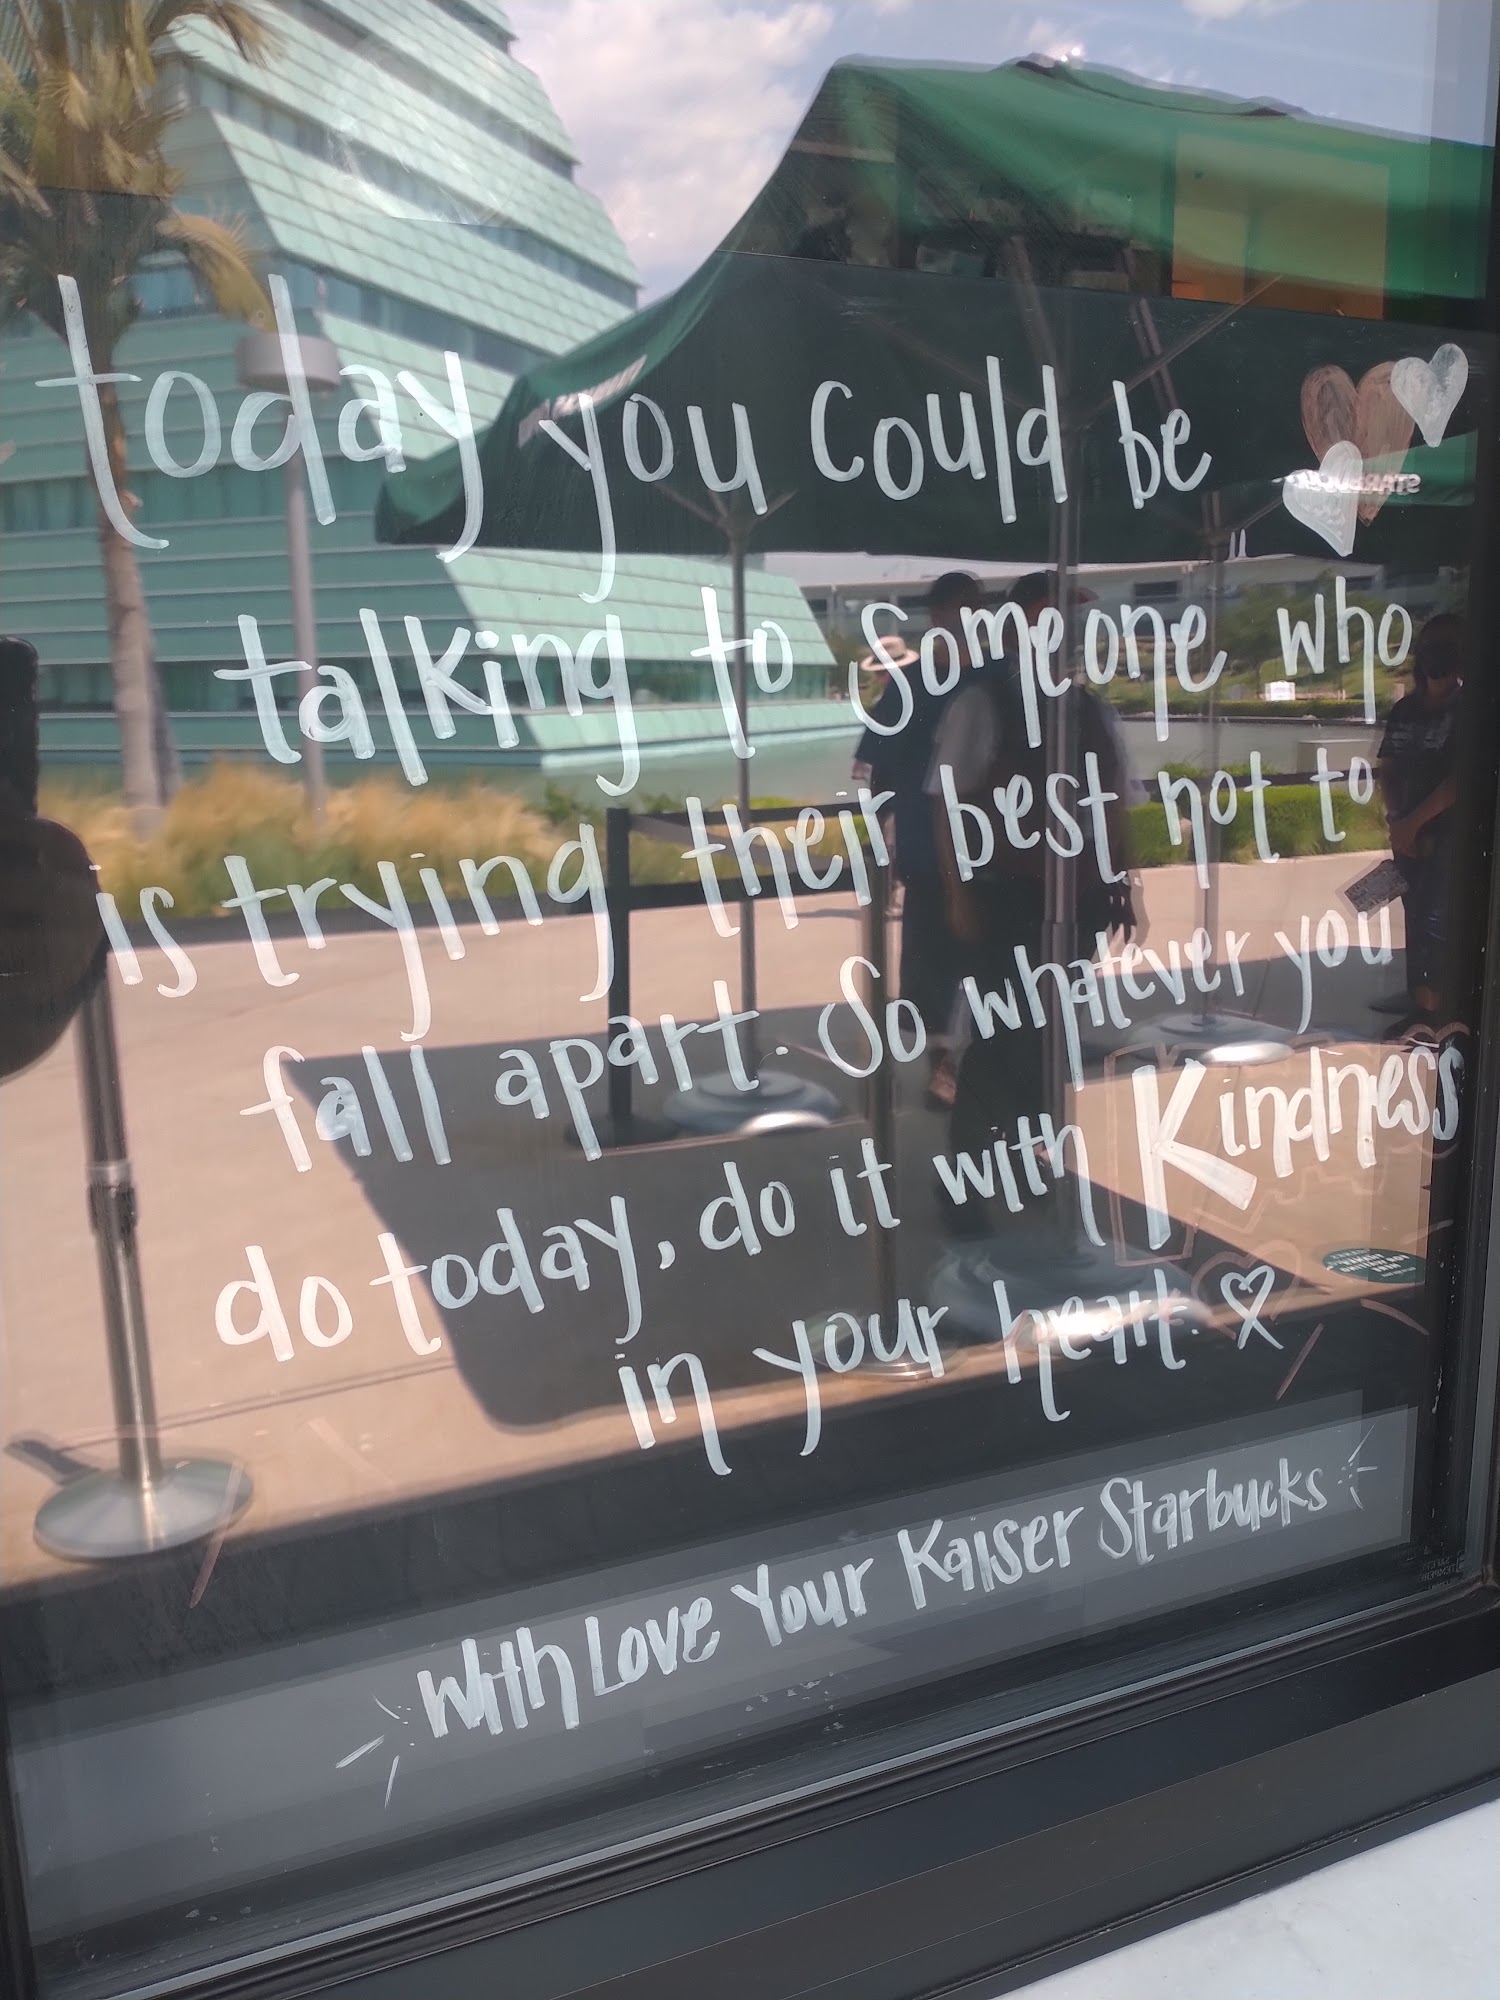 today you could be
talking to someone who
is trying their best not to
fall apart. So whatever you
do today, do it with Kindness
in your heart.
With Love Your Kaiser Starbucks
STARBUCKS